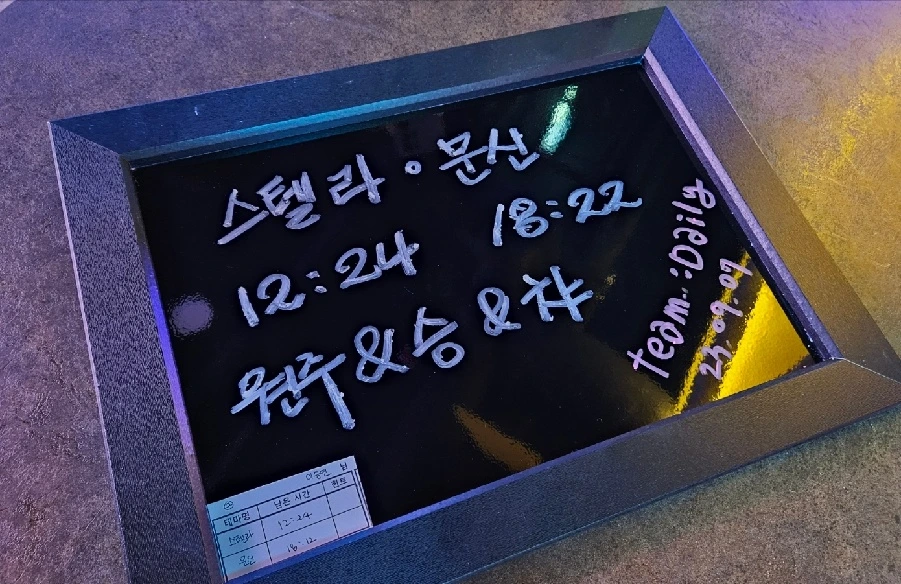 스텔라 • 문산
12:24 18:22
원주 & 승 & 챠
team::Daily
23.09.07
테마명 남은 시간 힌트
스텔라 12:24
문산 18:12